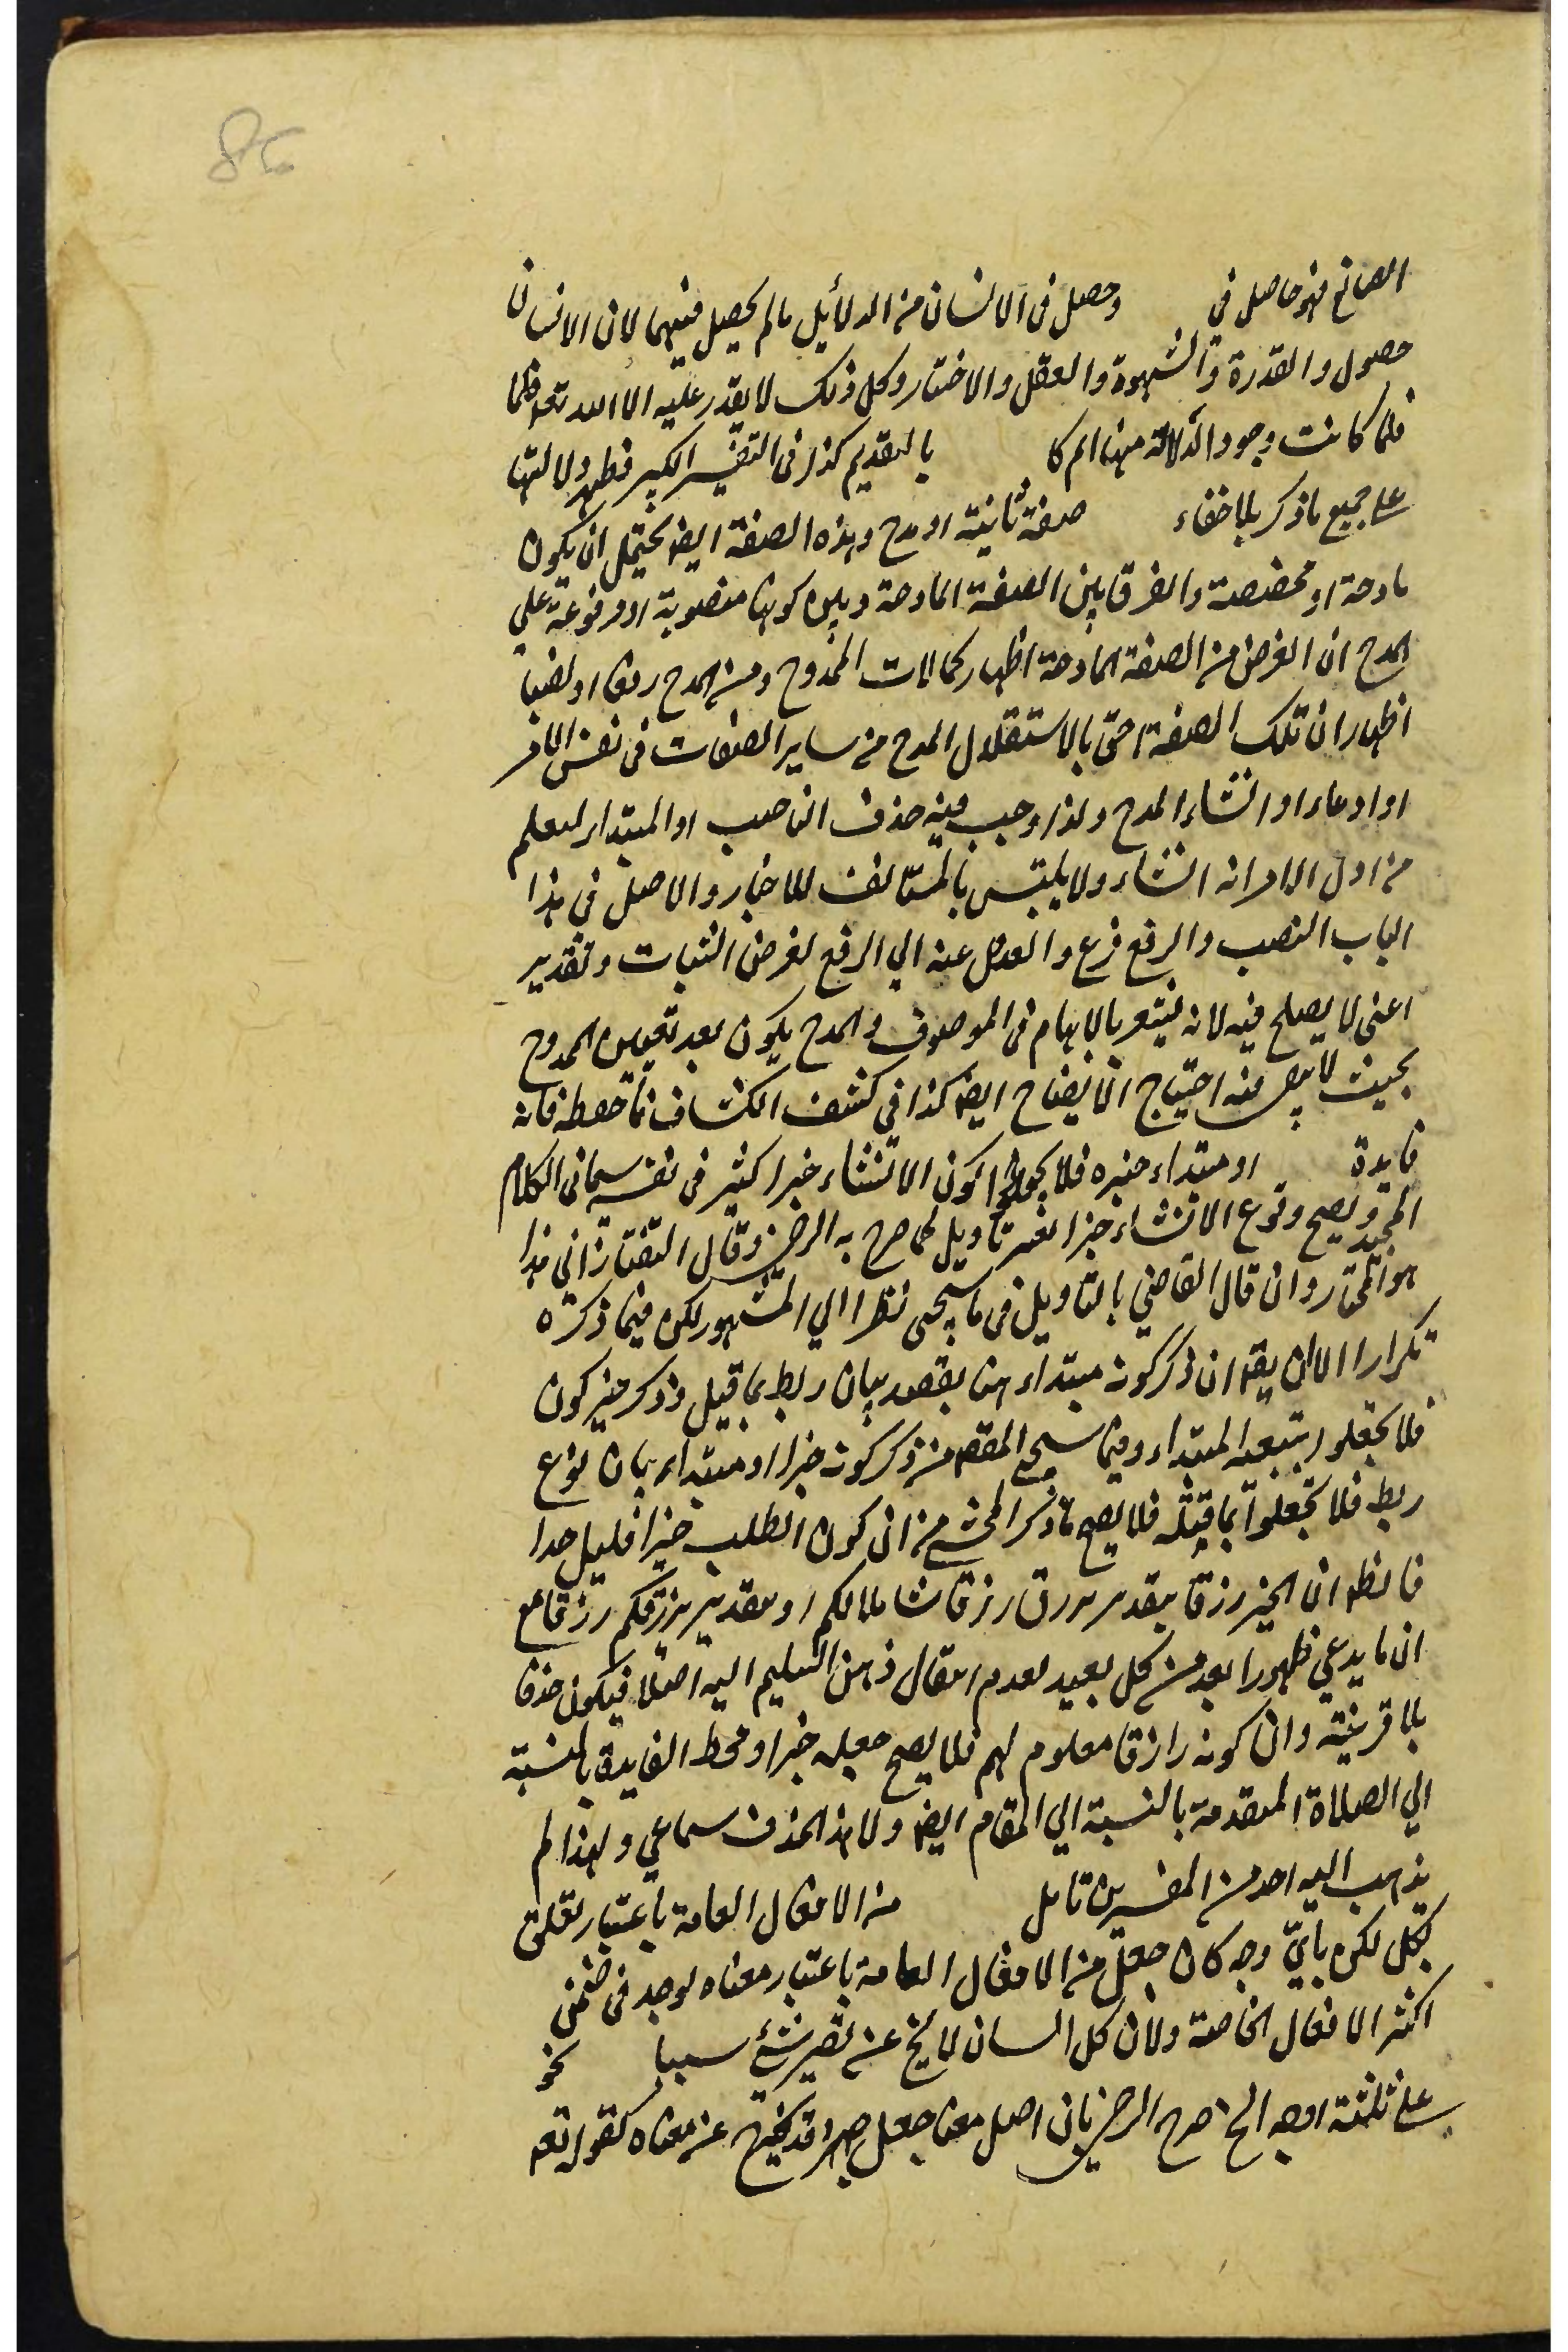 86
الصانع فهو حاصل في وحصل فى الانسان من الدلأيل مالم يحصل فيهما لان الانسان
حصول والقدرة والشهوة والعقل والاختيار وكل ذلك لا يقدر عليه الا الله تعه فلما
فلما كانت وجود الدلالة ههنا اتم كا بالتقديم كذا فى التفسير الكبير فظهر دلالتها
على جميع ماذكر بلا خفاء صفة ثانية او مدح وهذه الصفة ايضا يحتمل ان يكون
مادحة او مخصصة والفرق بين الصفة المادحة وبين كونها منصوبة او مرفوعة على
المدح ان الغرض من الصفة المادحة اظهار كمالات الممدوح ومن المدح رفعا او نصبا
اظهار ان تلك الصفة احق بالاستقلال المدح من ساير الصفات فى نفس الامر
او ادعاء او انشاء المدح ولذا وجب فيه حذف الناصب او المبتدا ليعلم
من اول الامر انه انشاء ولا يلتبس بالمستانف للاخبار والاصل فى هذا
الباب النصب والرفع فرع والعدل عنه الي الرفع لغرض الثبات وتقدير
اعنى لا يصلح فيه لانه يشعر بالابهام فى الموصوف والمدح يكون بعد تعيين الممدوح
بحيث لا يبقى فيه احتياج الا يضاح ايضا كذا فى كشف الكشاف فاحفظه فانه
فايدة او مبتداء خبره فلا تجعلوا كون الانشاء خبرا كثير فى نفسه سيما فى الكلام
المجيد ويصح وقوع الانشاء خبرا بغير تاويل كما صرح به الرضى وقال التفتازاني هذا
هو المختار وان قال القاضي بالتاويل فى ما سيجى نظرا الي المشهور لكن فيما ذكره
تكرارا الا ان يقه ان ذكر كونه مبتداء هنا بقصد بيان ربط بما قبل وذكر خبر كون
فلا تجعلوا بتبعية المبتداء وفيما سيجئ المقصه من ذكر كونه خبرا او مبتداء بيان نوع
ربط فلا تجعلوا بما قبله فلا يصح ما ذكر المحشي من ان كون الطلب خبرا قليل جدا
فالظه ان الخبر رزقا بتقدير يرزق رزقا شاملا لكم او بتقدير يرزقكم رزقا مع
ان ما يدعي ظهورا بعد من كل بعيد لعدم انتقال ذهن السليم اليه اصلا فيكون حذفا
بلا قرينة وان كونه رازقا معلوم لهم فلا يصح جعله خبرا ومحط الفايدة بالنسبة
الي الصلاة المتقدمة بالنسبة الي المقام ايضا ولا هذا الحذف سماعي ولهذا لم
يذهب اليه احد من المفسرين تامل من الافعال العامة باعتبار تعلق
بكل لكن بايّ وجه كان جعل من الافعال العامة باعتبار معناه لوجد فى ضمن
اكثر الافعال الخاصة ولان كل انسان لا يخ عن تصير شئ سببا نحو
على ثلثة اوجه الخ صرح الرضى بان اصل معنا جعل صير وقد يخرج عن معناه كقوله تعه